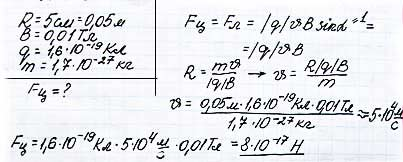 R = 5см = 0,05м
B = 0,01 Тл
q = 1,6·10⁻¹⁹ Кл
m = 1,7·10⁻²⁷ кг
Fц = ?
Fц = Fл = |q|ϑB sinα⁼¹ =
= |q|ϑB
R = mϑ/|q|B → ϑ = R|q|B/m
ϑ = 0,05м·1,6·10⁻¹⁹Кл·0,01Тл/1,7·10⁻²⁷кг ≈ 5·10⁴ м/с
Fц = 1,6·10⁻¹⁹Кл · 5·10⁴ м/с · 0,01Тл = 8·10⁻¹⁷ Н